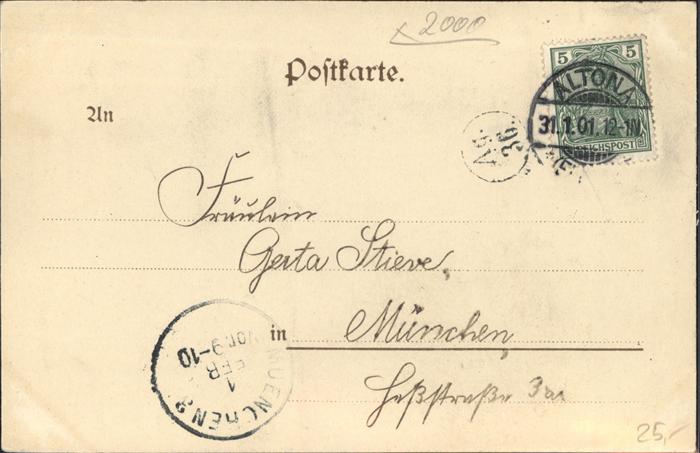 x 2000
Postkarte.
5 5
ALTONA
31.1.01.12-1N.
REICHSPOST
An
Ag. 36.
Fräulein
Gerta Stieve,
in München,
Heßstraße 3
MUENCHEN 2
1 FEB
VOR.9-10
25,-